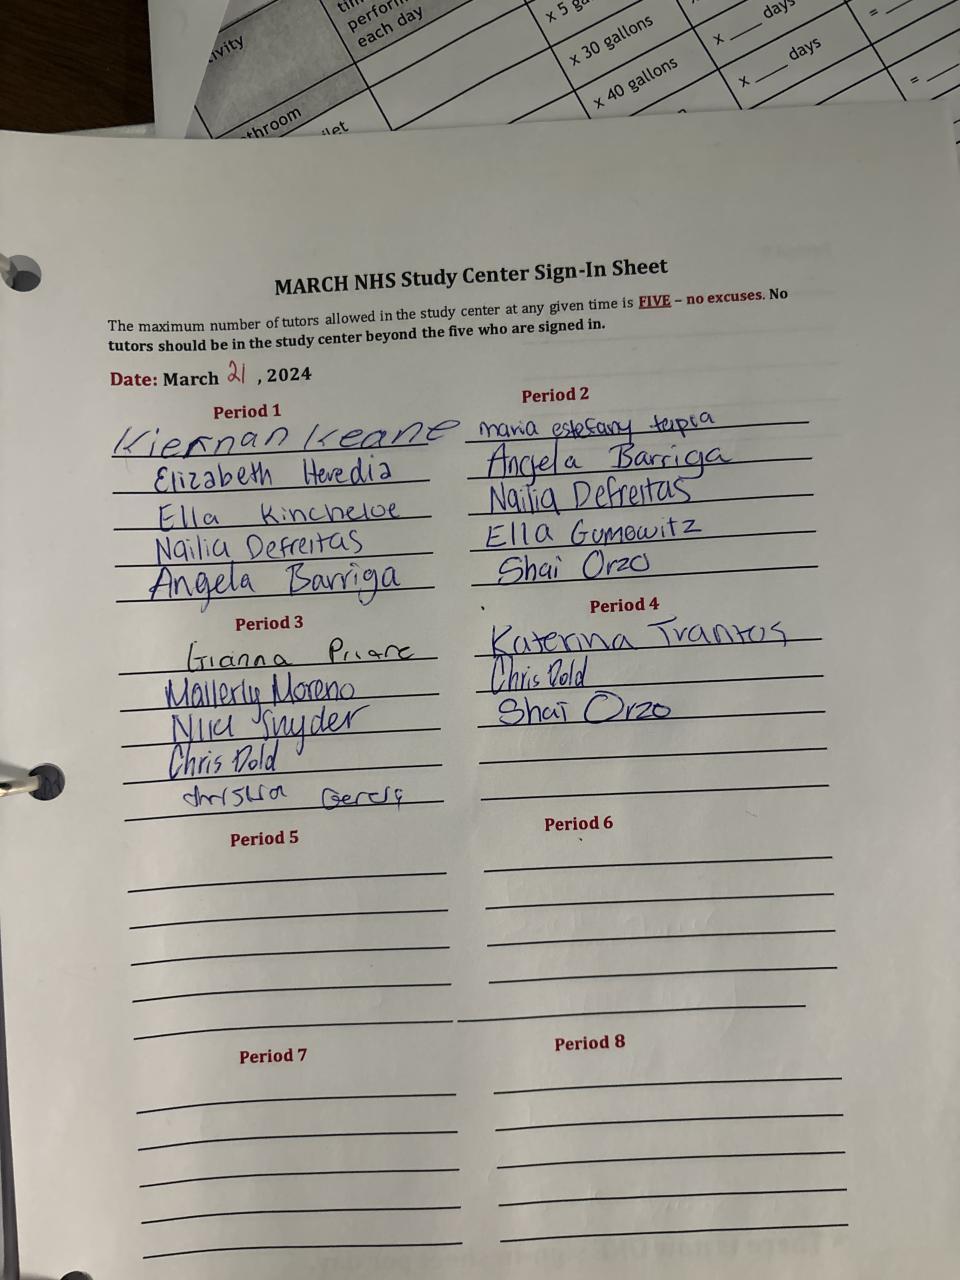 ivity
perform
each day
throom
x 30 gallons
x 40 gallons
x ____ days
x ____ days
=
= ____
MARCH NHS Study Center Sign-In Sheet
The maximum number of tutors allowed in the study center at any given time is FIVE – no excuses. No
tutors should be in the study center beyond the five who are signed in.
Date: March 21 , 2024
Period 1
Kiernan Keane
Elizabeth Heredia
Ella Kincheloe
Nailia Defreitas
Angela Barriga
Period 2
maria estefany
Angela Barriga
Nailia Defreitas
Ella Gumowitz
Shai Orzo
Period 3
Gianna
Mallerly Moreno
Snyder
Chris Dold
Period 4
Katerina Trantos
Chris Dold
Shai Orzo
Period 5
Period 6
Period 7
Period 8